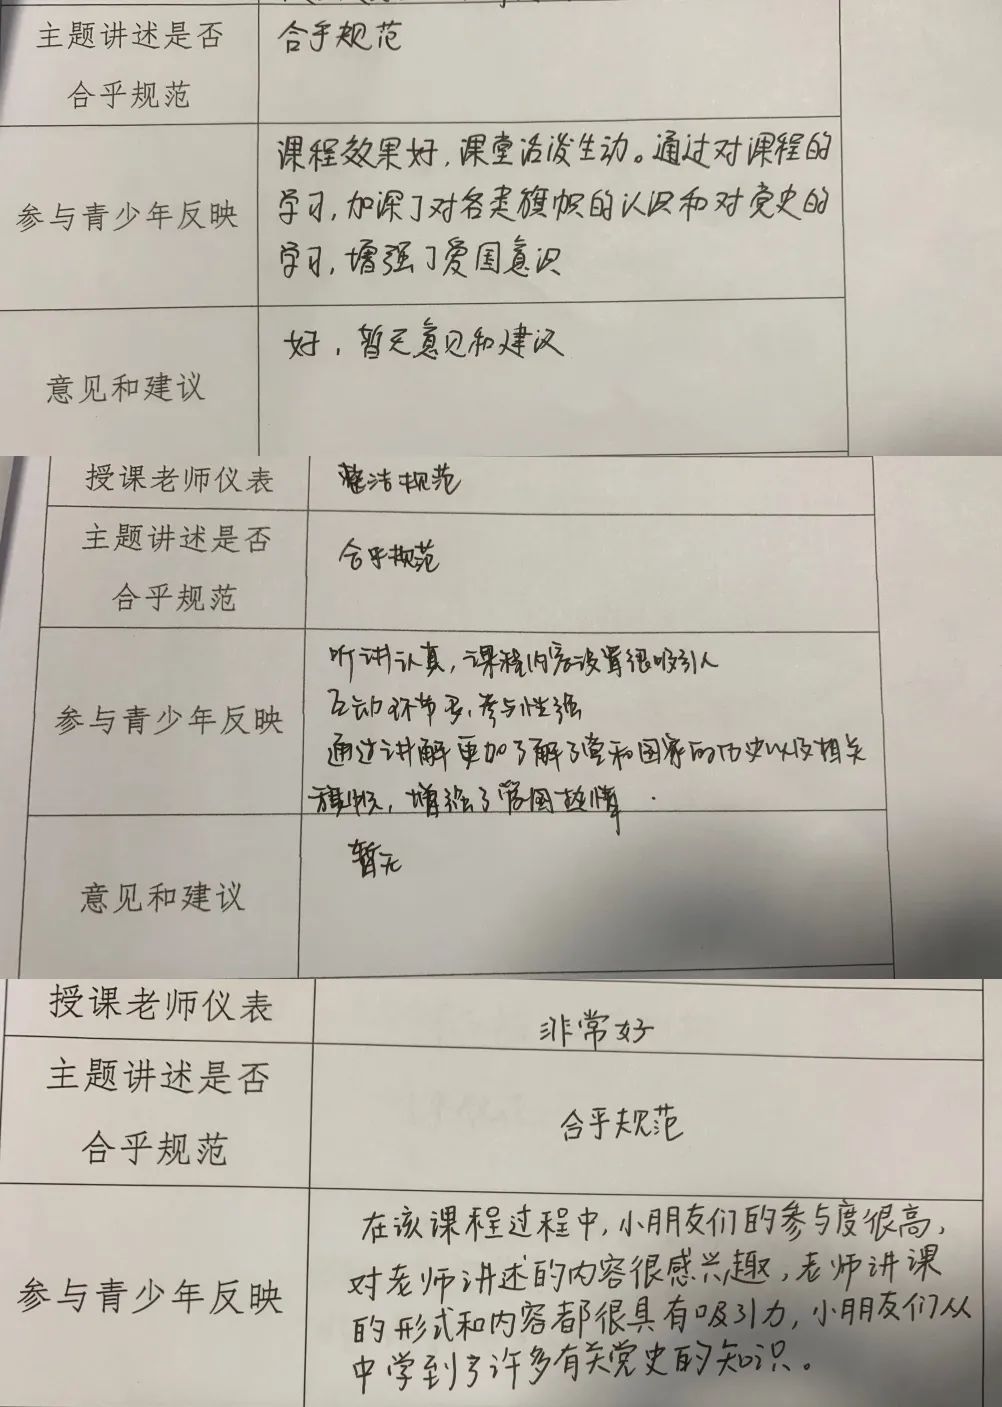 主题讲述是否
合乎规范
合乎规范
参与青少年反映
课程效果好，课堂活泼生动。通过对课程的
学习，加深了对各类旗帜的认识和对党史的
学习，增强了爱国意识
意见和建议
好，暂无意见和建议
授课老师仪表
整洁规范
主题讲述是否
合乎规范
合乎规范
参与青少年反映
听讲认真，课程内容设置很吸引人
互动环节多，参与性强
通过讲解更加了解了党和国家的历史以及相关
旗帜，增强了爱国热情.
意见和建议
暂无
授课老师仪表
非常好
主题讲述是否
合乎规范
合乎规范
参与青少年反映
在该课程过程中，小朋友们的参与度很高，
对老师讲述的内容很感兴趣，老师讲课
的形式和内容都很具有吸引力，小朋友们从
中学到了许多有关党史的知识。